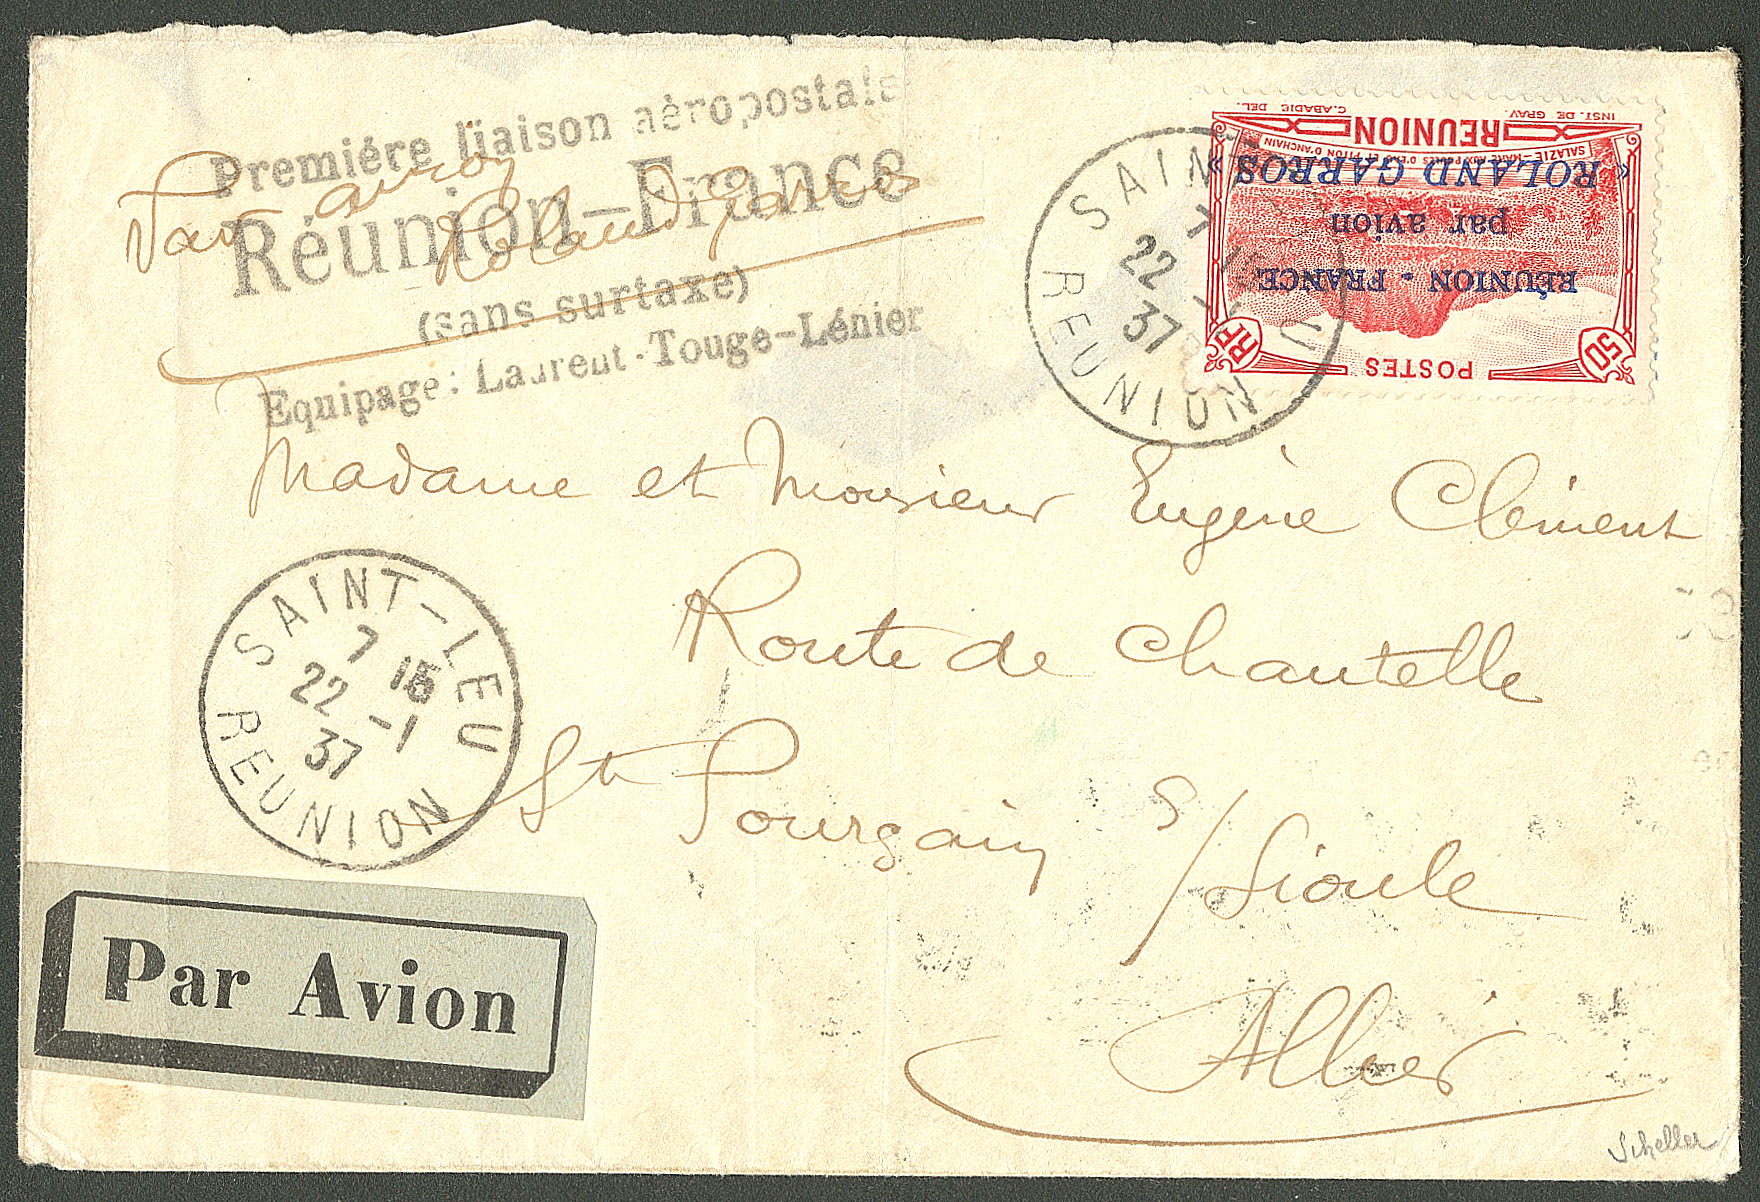 Première liaison aéropostale
Réunion-France
(sans surtaxe)
Equipage: Laurent-Touge-Lénier
Par avion
Roland Garros
SAINT-LEU
7 15
22 -1
37
REUNION
INST. DE GRAV. C. ABADIE DEL.
REUNION
SALAZIE-MARE AUX POULES D'EAU ET PITON D'ANCHAIN
« ROLAND GARROS »
par avion
RÉUNION - FRANCE
50 RF
POSTES
Madame et Monsieur Eugène Clément
Route de Chantelle
St Pourçain s/Sioule
Allier
SAINT-LEU
7 15
22 -1
37
REUNION
Par Avion
Scheller